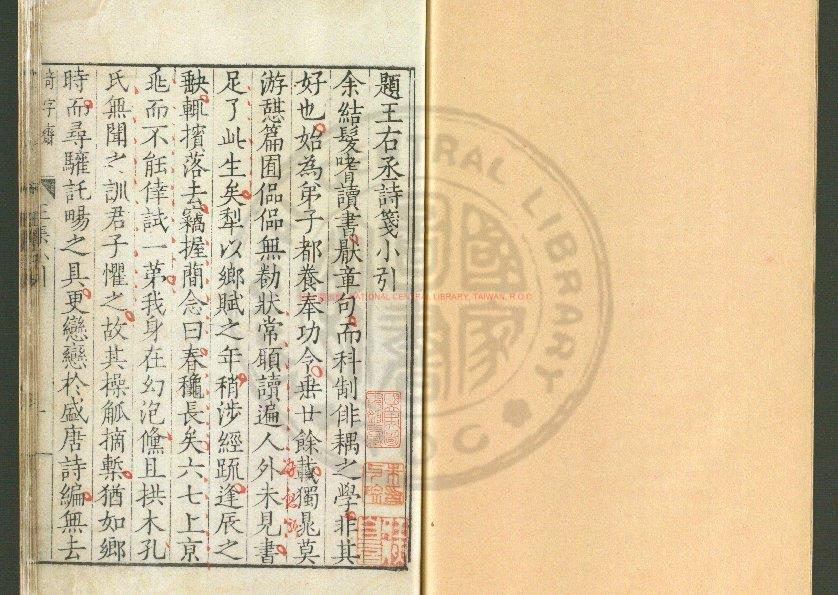 題王右丞詩箋小引
余結髮嗜讀書厭章句而科制俳耦之學非其
好也始為弟子都養奉功令垂廿餘載獨晁莫
游憇篇囿倡倡無勌狀常願讀遍人外未見書
足了此生矣犁以鄉賦之年稍涉經疏逢辰之
缺輒擯落去竊握蕳念曰春穐長矣六七上京
兆而不能倖試一第我身在幻泡儵且拱木孔
氏無聞之訓君子懼之故其操觚摘槧猶如鄉
時而尋驩託暢之具更戀戀於盛唐詩編無去
NATIONAL CENTRAL LIBRARY, TAIWAN, R.O.C